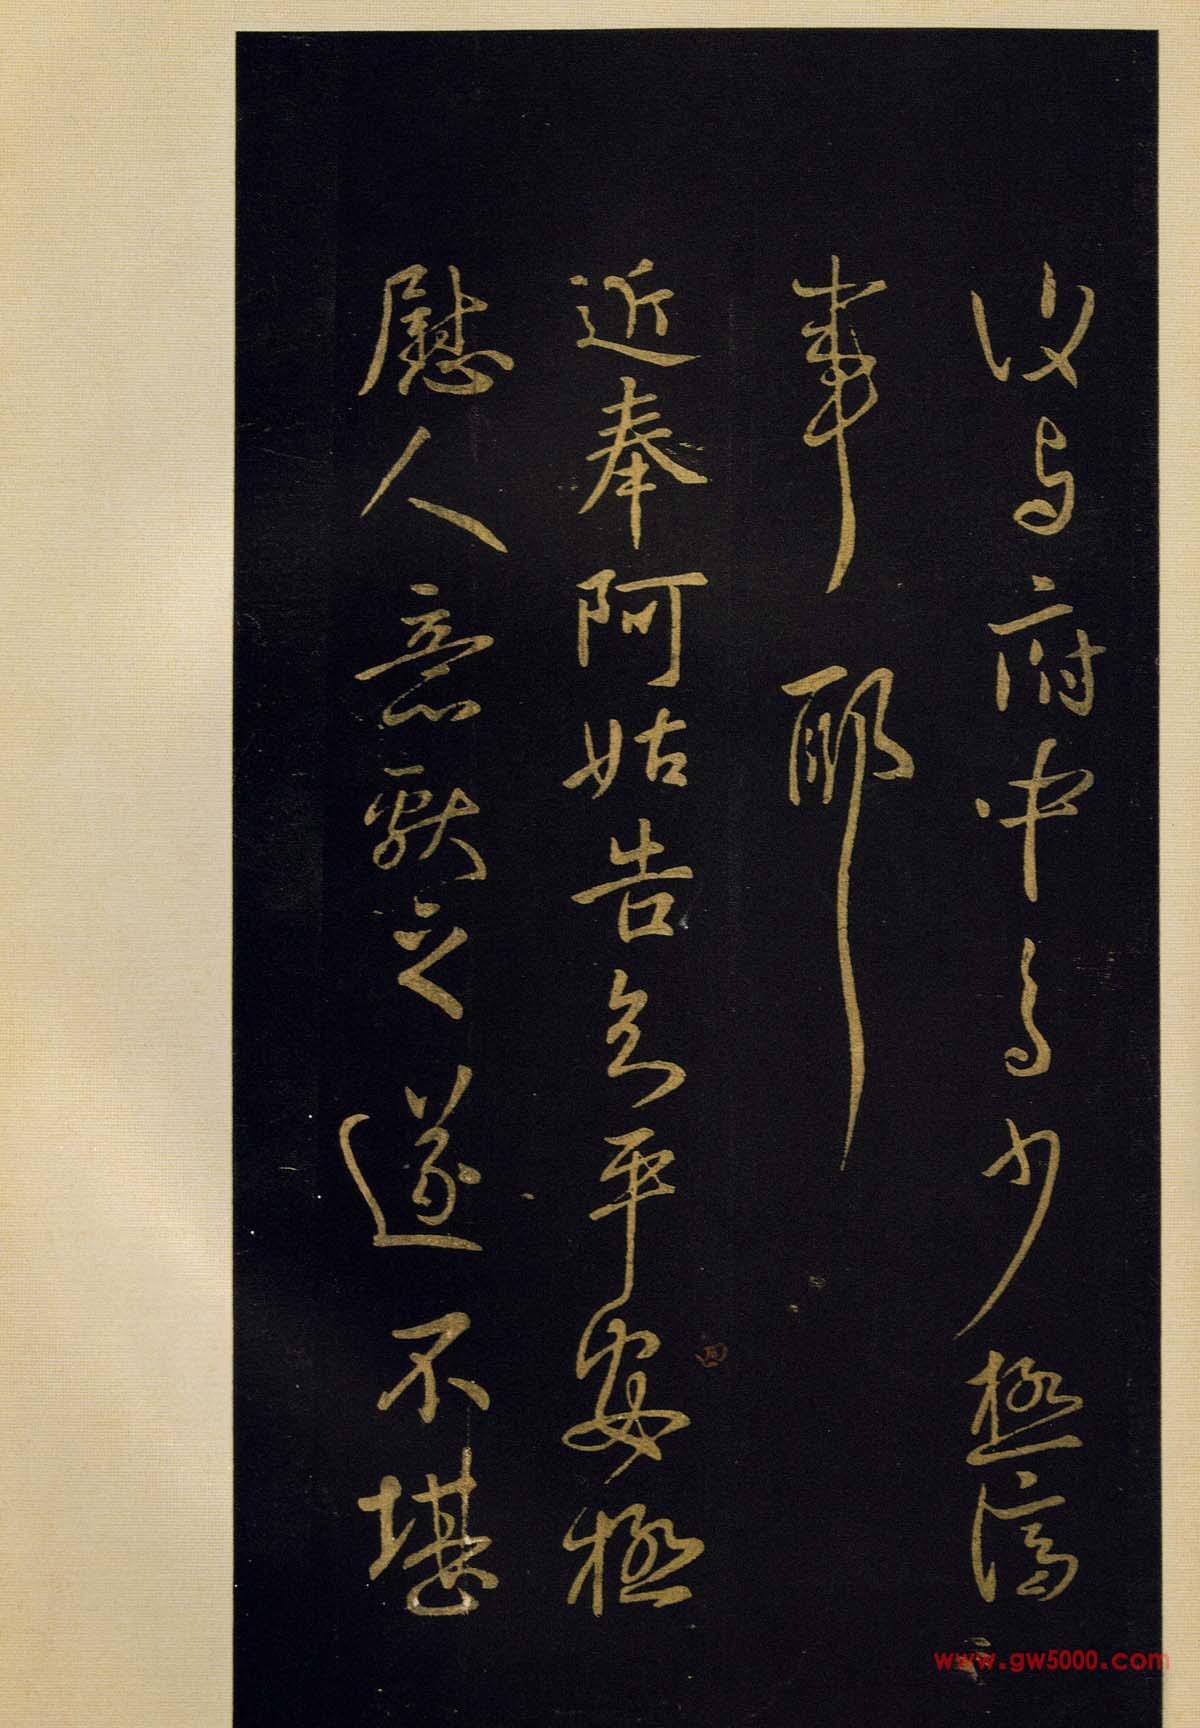 與府中少極
事耶
近奉阿姑告知平安極
慰人意獻之遂不堪
www.gw5000.com